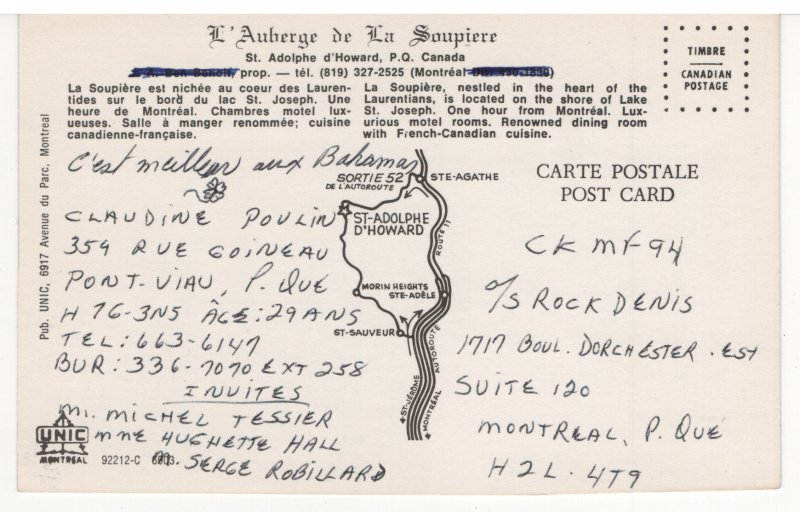 L'Auberge de La Soupiere
St. Adolphe d'Howard, P.Q. Canada
J. A. Ben Benoit, prop. — tél. (819) 327-2525 (Montréal
La Soupière est nichée au coeur des Lauren-
tides sur le bord du lac St. Joseph. Une
heure de Montréal. Chambres motel lux-
ueuses. Salle à manger renommée; cuisine
canadienne-française.
La Soupière, nestled in the heart of the
Laurentians, is located on the shore of Lake
St. Joseph. One hour from Montréal. Lux-
urious motel rooms. Renowned dining room
with French-Canadian cuisine.
TIMBRE
CANADIAN
POSTAGE
Pub. UNIC, 6917 Avenue du Parc, Montreal
C'est meilleur aux Bahamas
CLAUDINE POULIN
359 RUE GOINEAU
PONT-VIAU, P. QUÉ
H 76-3N5 ÂGE: 29 ANS
TEL: 663-6147
BUR: 336-7070 EXT 258
INVITÉS
M. MICHEL TESSIER
MME HUGHETTE HALL
M. SERGE ROBILLARD
UNIC
MONTREAL
92212-C
SORTIE 52
DE L'AUTOROUTE
STE-AGATHE
ST-ADOLPHE
D'HOWARD
ROUTE 11
MORIN HEIGHTS
STE-ADÈLE
ST-SAUVEUR
ST-JÉRÔME
MONTRÉAL
AUTOROUTE
CARTE POSTALE
POST CARD
CKMF-94
a/s ROCK DENIS
1717 BOUL. DORCHESTER. EST
SUITE 120
MONTREAL, P. QUÉ
H2L-4T9